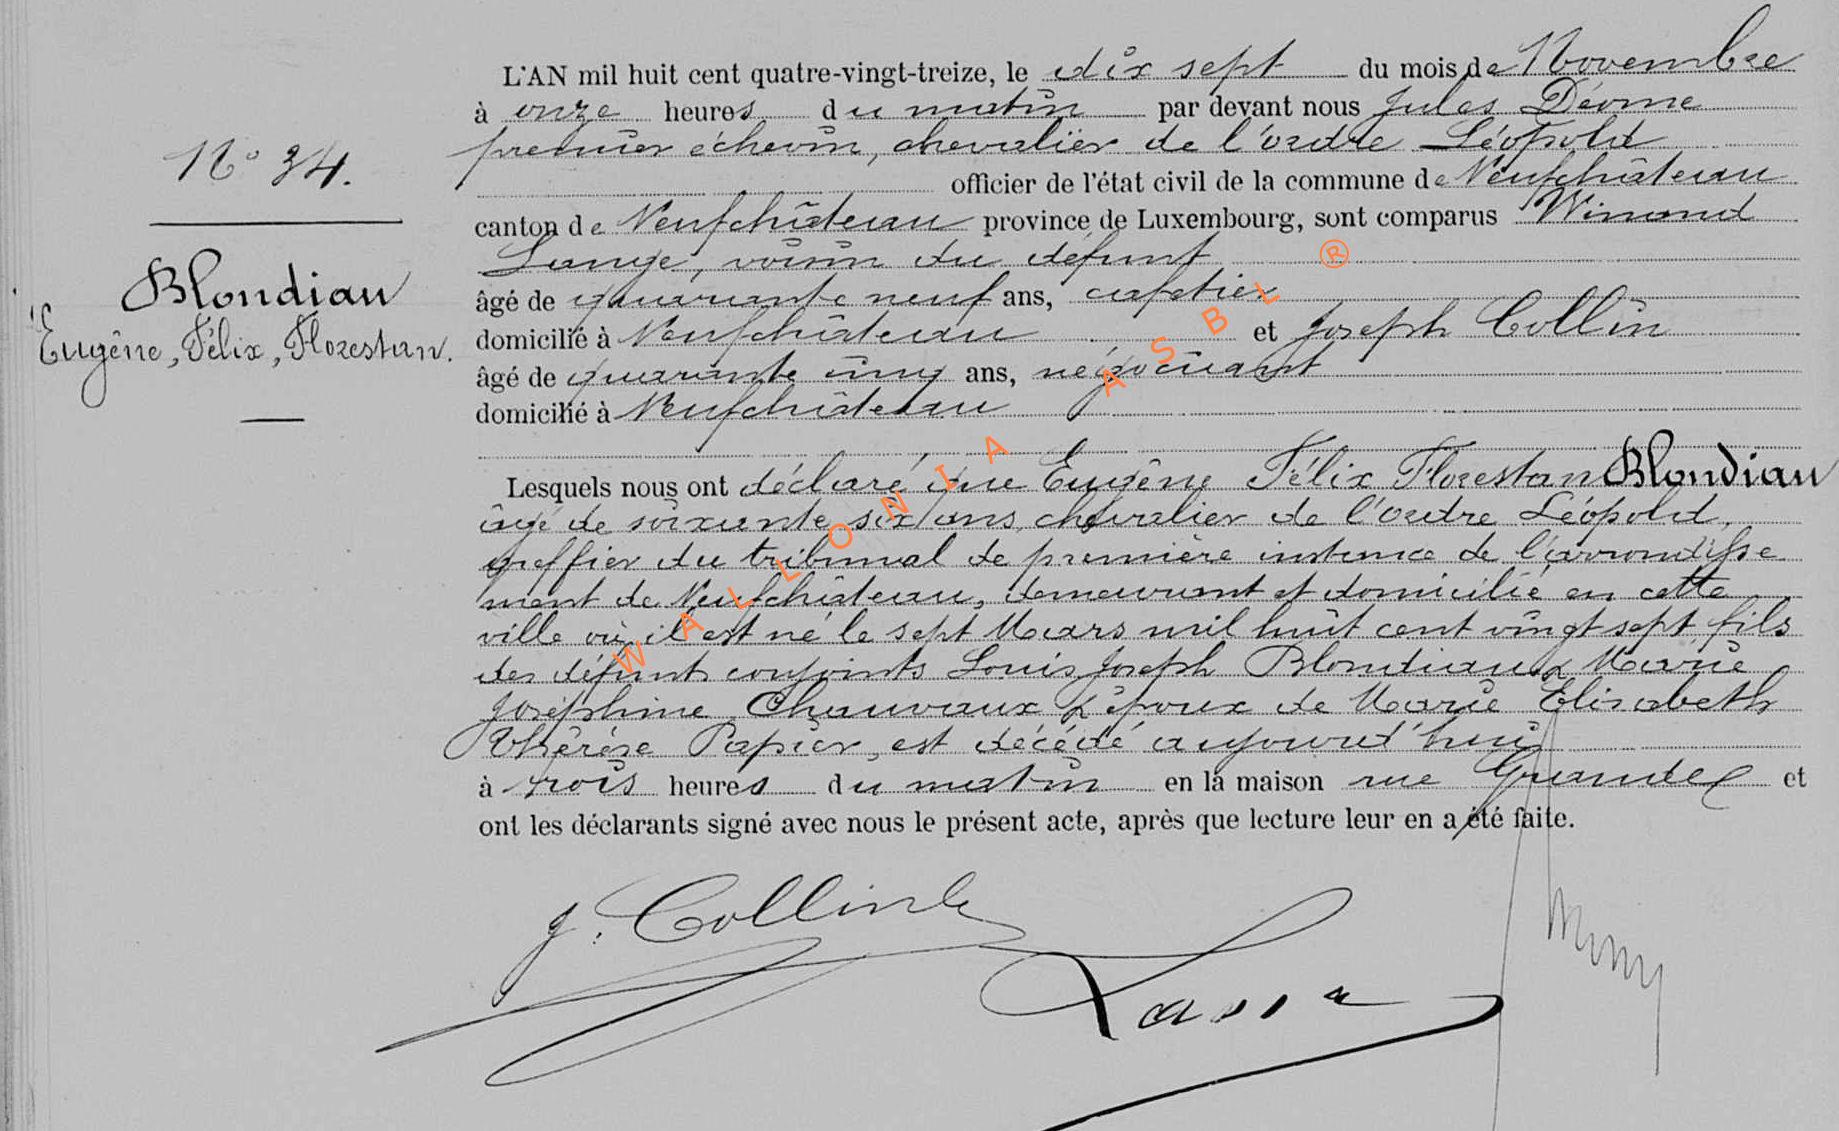 N° 34.
Blondiau
Eugène, Félix, Florestan.
L'AN mil huit cent quatre-vingt-treize, le dix sept du mois de Novembre
à onze heures du matin par devant nous Jules Déome
premier échevin, chevalier de l'ordre Léopold
officier de l'état civil de la commune de Neufchâteau
canton de Neufchâteau province de Luxembourg, sont comparus Winand
voisin du défunt
âgé de quarante neuf ans, cafetier
domicilié à Neufchâteau et Joseph Collin
âgé de quarante cinq ans, négociant
domicilié à Neufchâteau
Lesquels nous ont déclaré que Eugène Félix Florestan Blondiau
âgé de soixante six ans, chevalier de l'ordre Léopold,
greffier du tribunal de première instance de l'arrondisse
ment de Neufchâteau, demeurant et domicilié en cette
ville où il est né le sept Mars mil huit cent vingt sept, fils
des défunts conjoints Louis Joseph Blondiau & Marie
Joséphine Chauvaux & époux de Marie Elisabeth
Thérèse Papier, est décédé aujourd'hui
à trois heures du matin en la maison rue Grande et
ont les déclarants signé avec nous le présent acte, après que lecture leur en a été faite.
J. Collin
WALLONIA ASBL ®